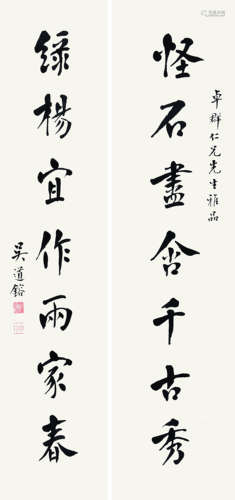 卓群仁兄先生雅品
怪石盡含千古秀
綠楊宜作兩家春
吳道鎔